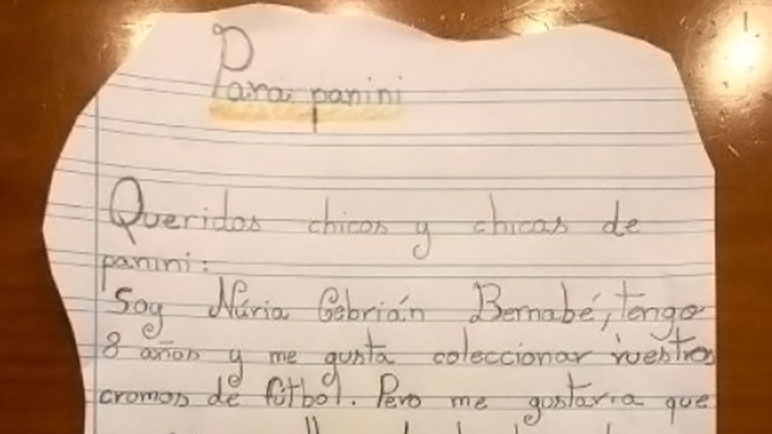 Para panini
Queridos chicos y chicas de
panini:
Soy Núria Cebrián Bernabé, tengo
8 años y me gusta coleccionar vuestros
cromos de fútbol. Pero me gustaria que